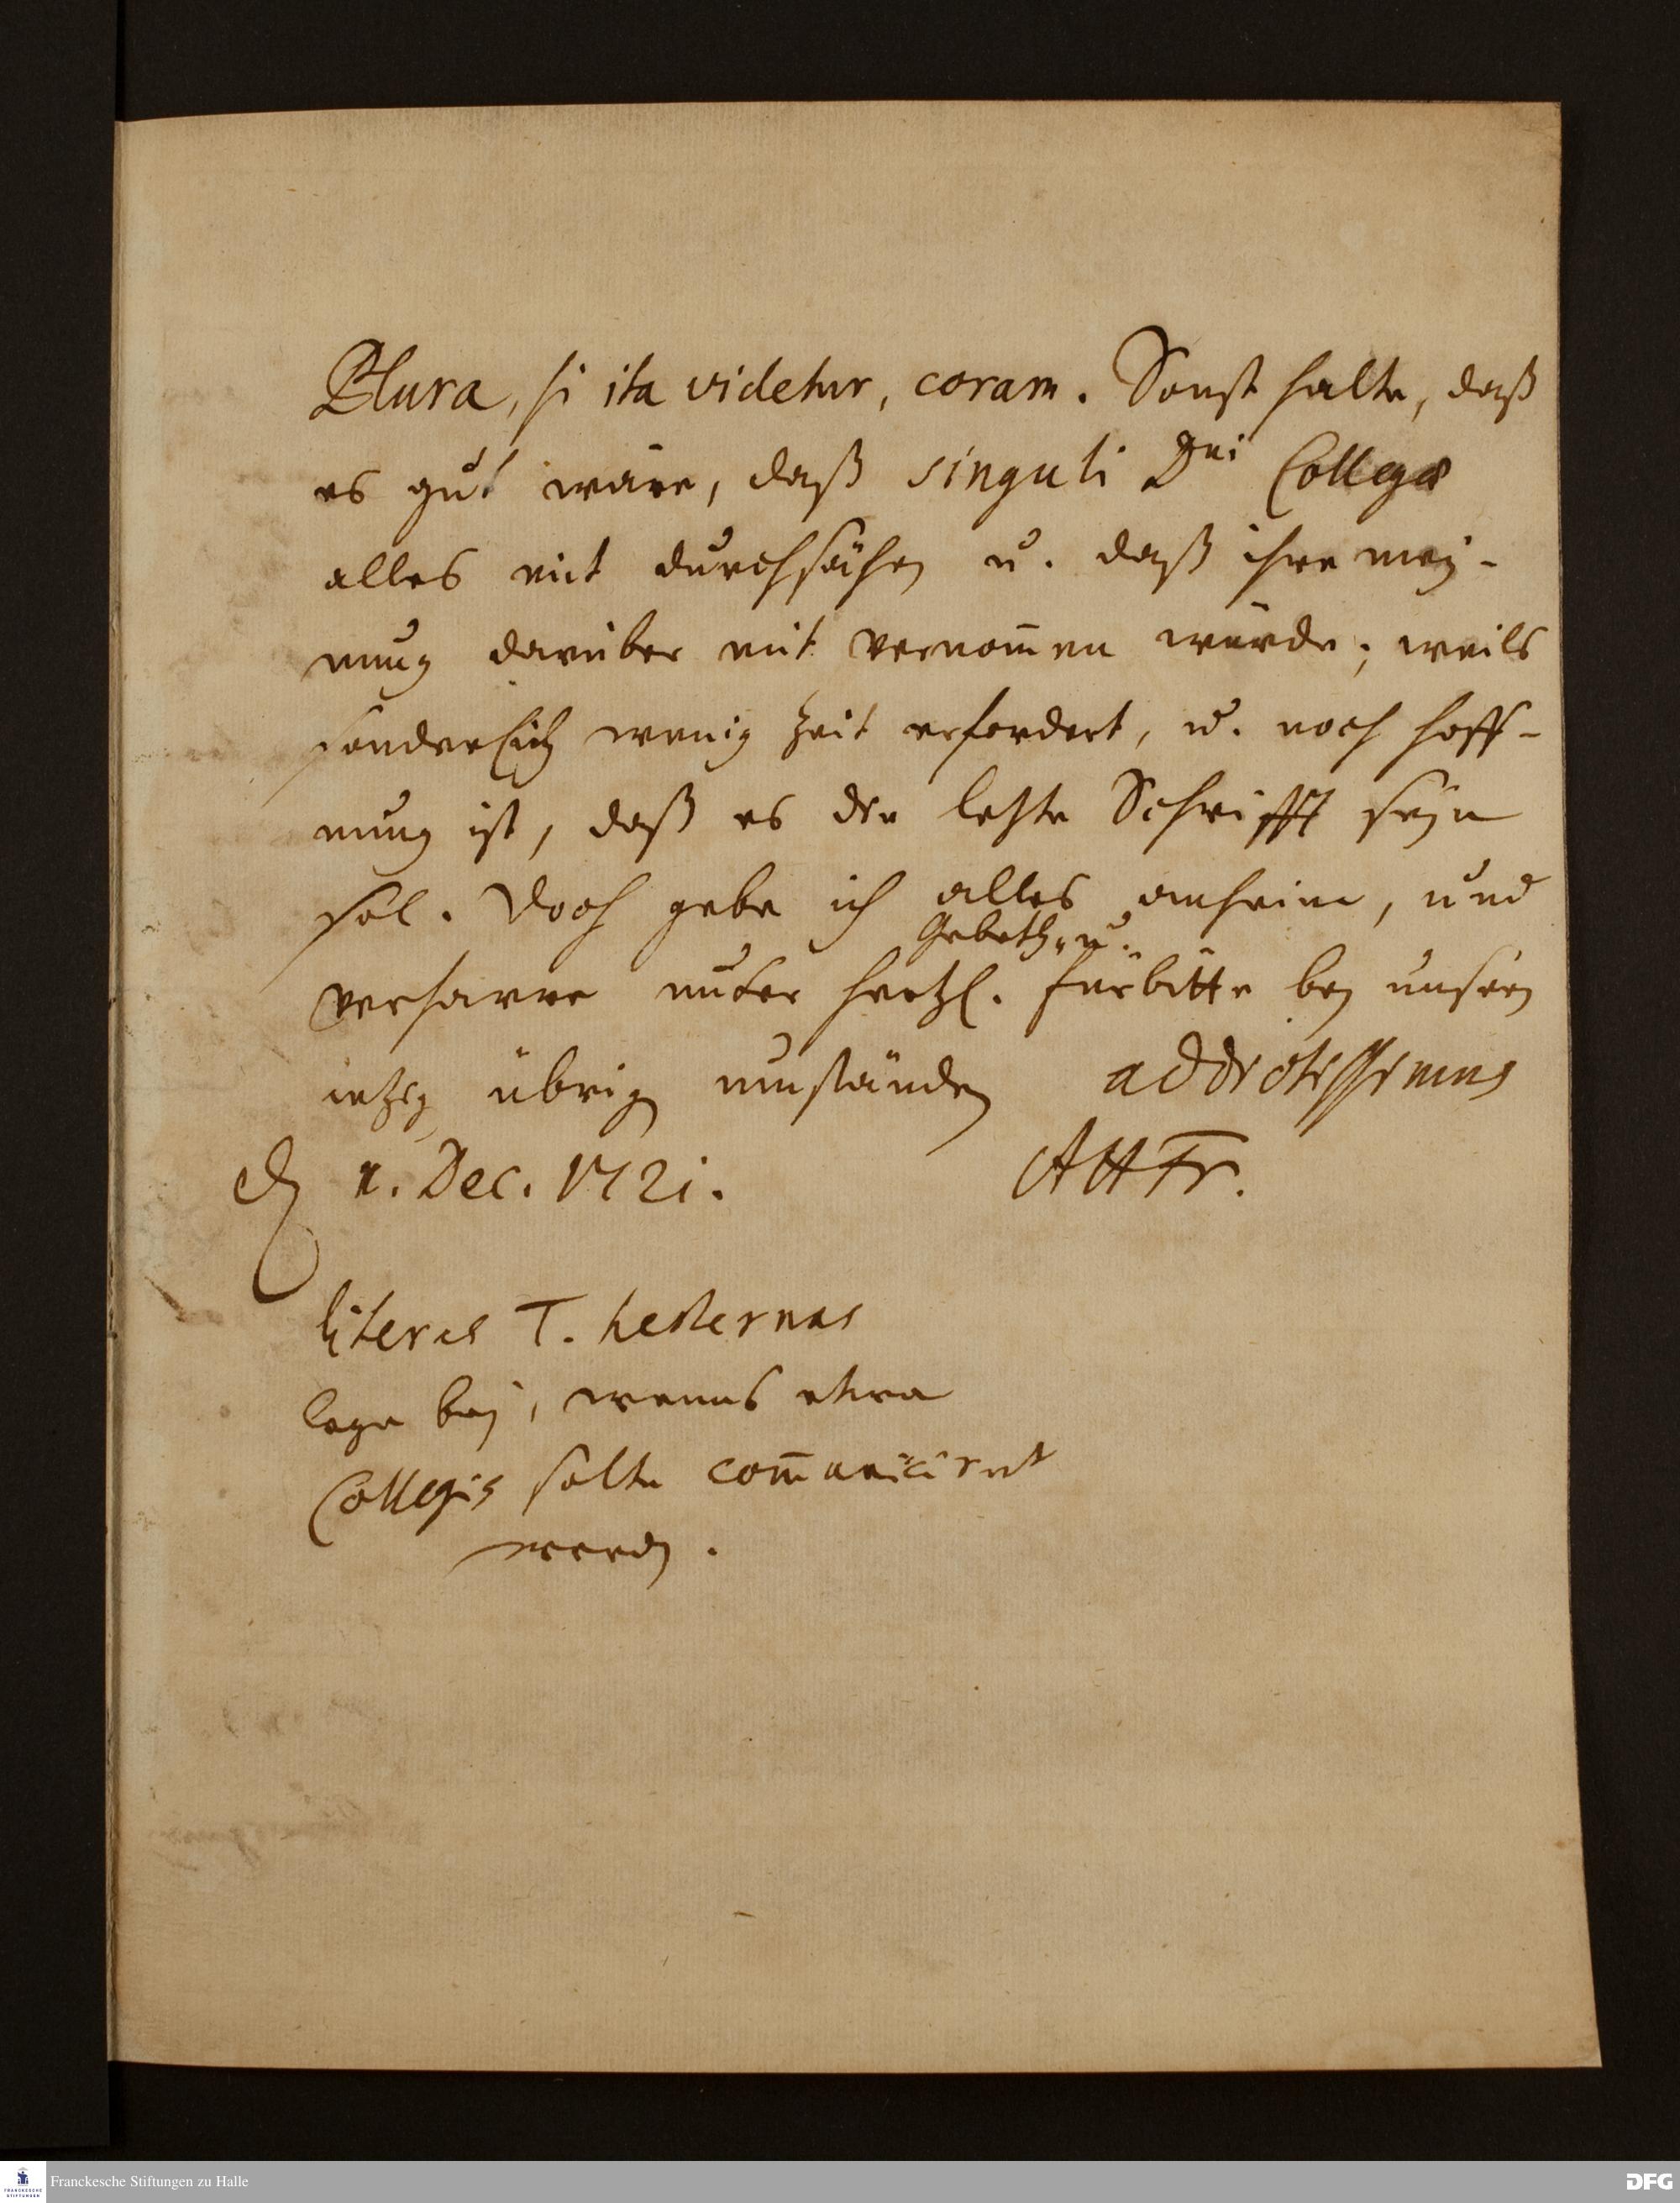 Plura, si ita videtur, coram. Sonst halte, daß
es gut wäre, daß singuli Dni Collegæ
alles mit durchsähen u. daß ihre mey-
nung darüber mit vernom̄en würde; weils
sonderlich wenig Zeit erfordert, u. noch hoff-
nung ist, daß es die letzte Schrifft seyn
sol. Doch gebe ich alles anheim, und
Gebeth- u.
verharre unter hertzl. fürbitte bey unsern
übrigen umständen addictissimus
1. Dec. 1721. AHFr.
literas T. hesternas
lege bey, wenns etwa
Collegis solte com̄uniciret
werden.
Franckesche Stiftungen zu Halle
FRANCKESCHE STIFTUNGEN
DFG